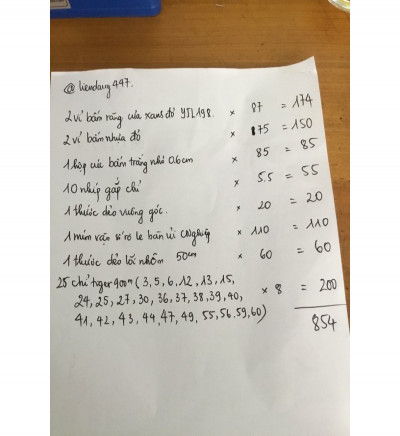 @ liendang447.
2 vỉ bấm răng cưa xanh đỏ YJL198. × 87 = 174
2 vỉ bấm nhựa đỏ × 75 = 150
1 hộp cúc bấm trắng nhỏ 0.6cm × 85 = 85
10 nhíp gắp chỉ × 5.5 = 55
1 thước dẻo vuông góc. × 20 = 20
1 × 110 = 110
1 thước dẻo lõi nhôm 50cm × 60 = 60
25 chỉ tiger 900m (3, 5, 6, 12, 13, 15,
24, 25, 27, 30, 36, 37, 38, 39, 40, × 8 = 200
41, 42, 43, 44, 47, 49, 55, 56, 59, 60)
854